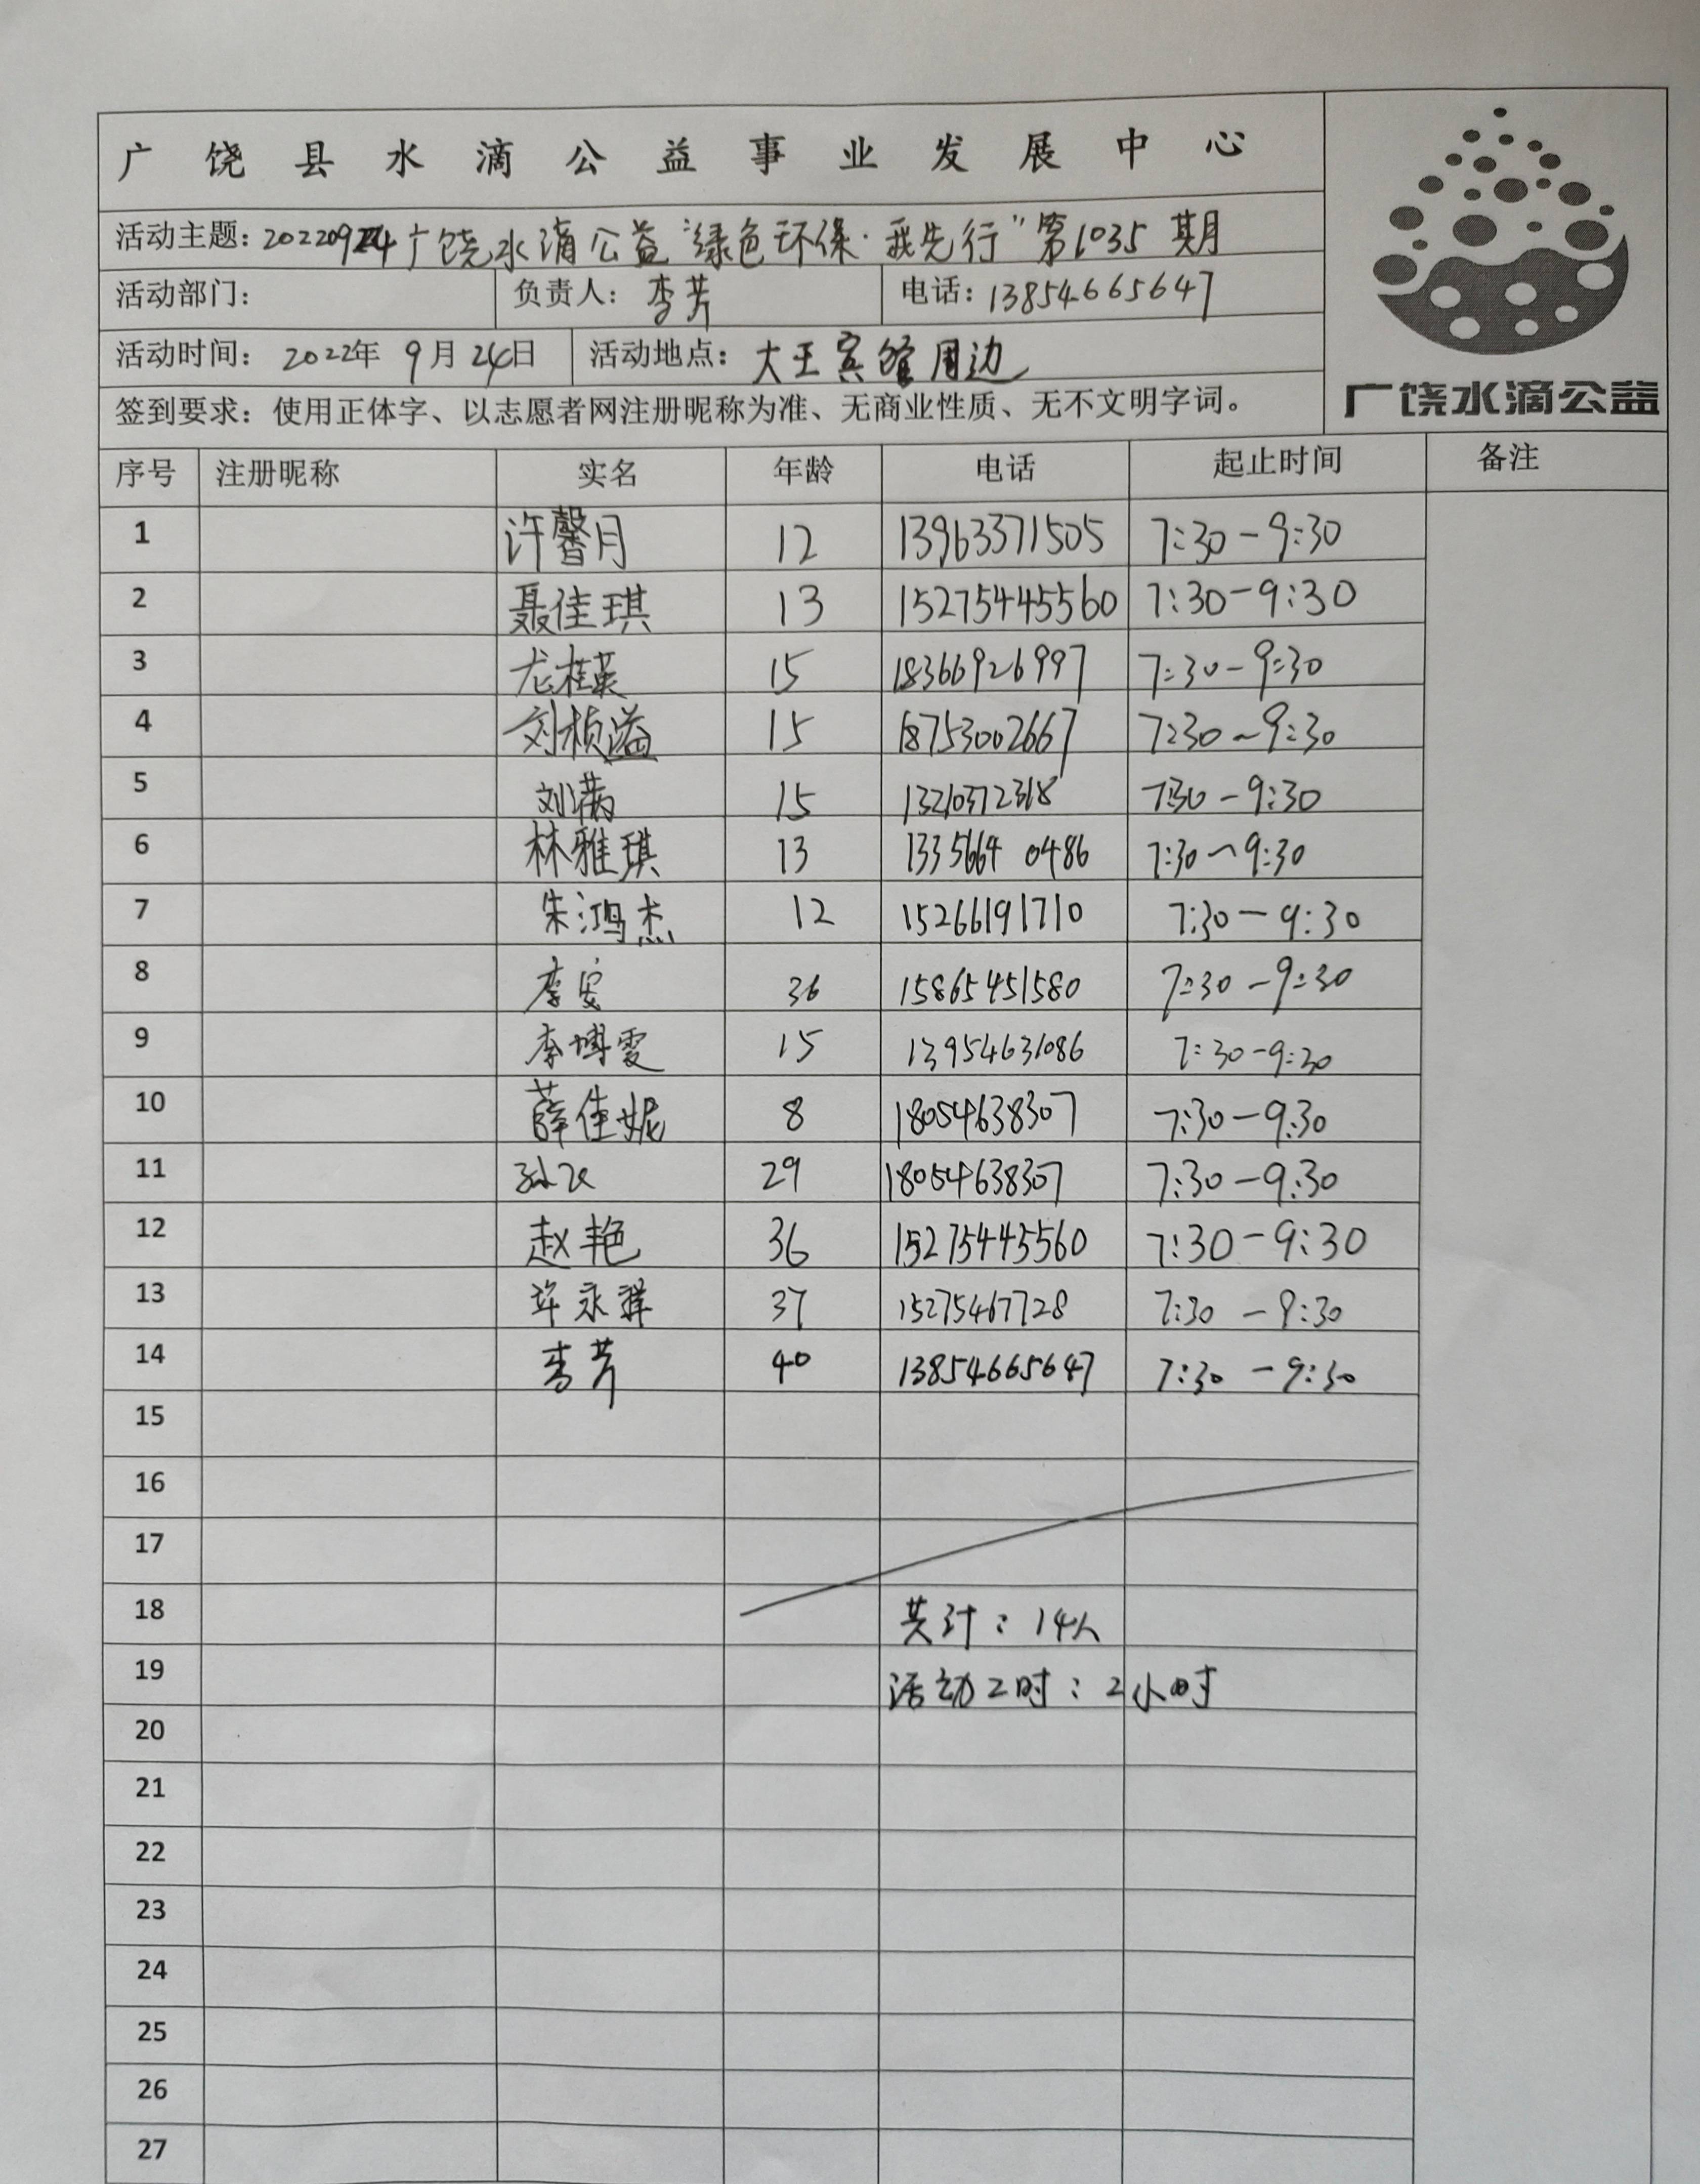 广饶县水滴公益事业发展中心
活动主题：20220924广饶水滴公益"绿色环保·我先行"第1035期
活动部门： 负责人：李芳 电话：13854665647
活动时间：2022年9月24日 活动地点：大王宾馆周边
签到要求：使用正体字、以志愿者网注册昵称为准、无商业性质、无不文明字词。
广饶水滴公益
序号 注册昵称 实名 年龄 电话 起止时间 备注
1 许馨月 12 13963371505 7:30-9:30
2 聂佳琪 13 15275445560 7:30-9:30
3 尤桂英 15 18366926997 7:30-9:30
4 刘桢溢 15 18753002667 7:30~9:30
5 刘满 15 7:30-9:30
6 林雅琪 13 1335664 0486 7:30~9:30
7 朱鸿杰 12 15266191710 7:30-9:30
8 李安 36 15865451580 7:30-9:30
9 李博雯 15 13954631086 7:30-9:30
10 薛佳妮 8 18054638307 7:30-9:30
11 29 18054638307 7:30-9:30
12 赵艳 36 15275445560 7:30-9:30
13 许永祥 37 15275467728 7:30-9:30
14 李芳 40 13854665647 7:30-9:30
15
16
17
18 共计：14人
19 活动工时：2小时
20
21
22
23
24
25
26
27